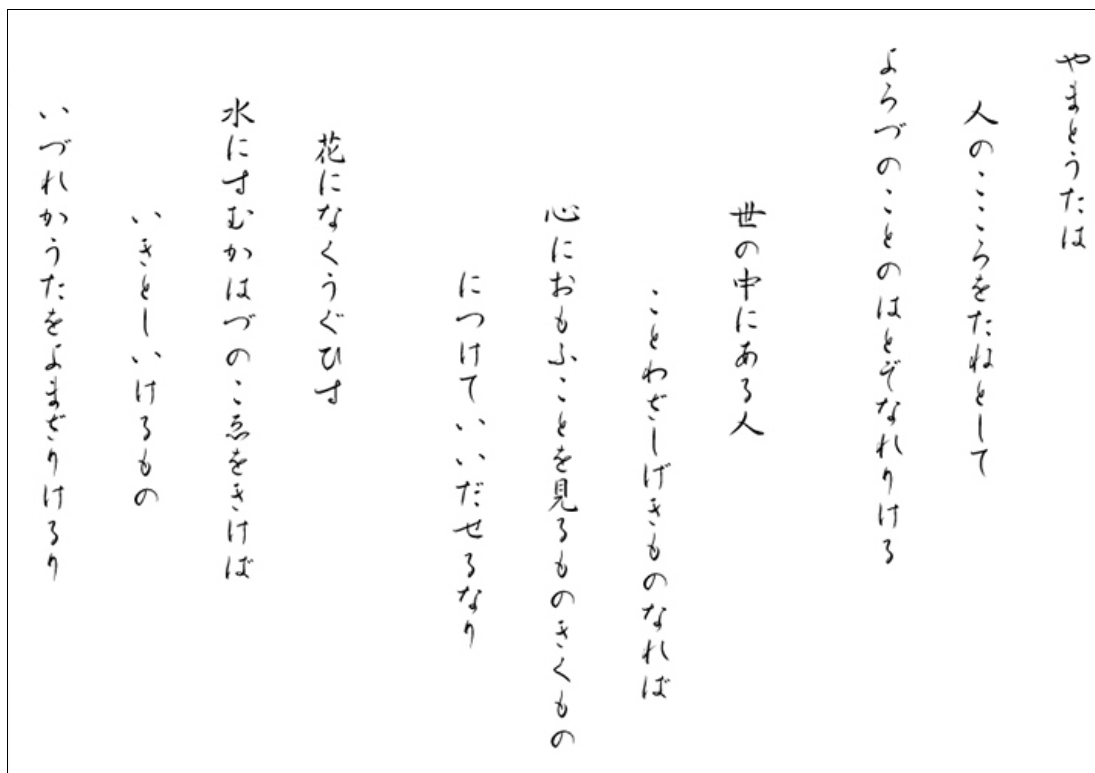 やまとうたは
人のこころをたねとして
よろづのことのはとぞなれりける
世の中にある人
ことわざしげきものなれば
心におもふことを見るものきくもの
につけていいだせるなり
花になくうぐひす
水にすむかはづのこゑをきけば
いきとしいけるもの
いづれかうたをよまざりけるり